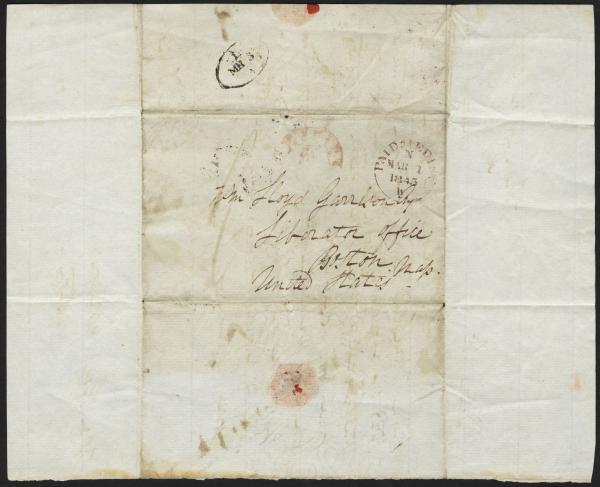 PAID
MAR 1
1845
Wm Lloyd Garrison Esq
Liberator Office
Boston Mass.
United States